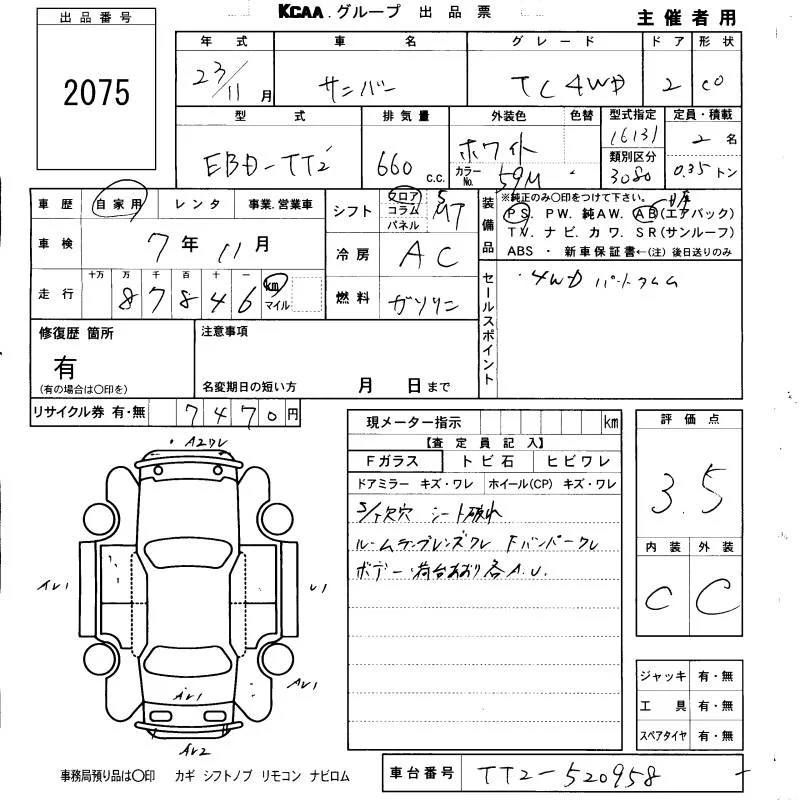 KCAA.グループ 出品票
主催者用
出品番号
2075
年式 車名 グレード ドア 形状
23/11月 サンバー TC 4WD 2 CD
型式 排気量 外装色 色替 型式指定 定員・積載
EBD-TT2 660 c.c. ホワイト 16131 2名
カラーNo. 59M 類別区分 3080 0.35トン
車歴 自家用 レンタ 事業.営業車
シフト フロア コラム パネル 5 MT
装備品 ※純正のみ〇印をつけて下さい。
PS. PW. 純AW. AB(エアバック)
TV. ナビ. カワ. SR(サンルーフ)
ABS ・ 新車保証書←(注)後日送りのみ
車検 7年11月
冷房 AC
走行 十万 万 千 百 十 一
87846 km マイル
燃料 ガソリン
セールスポイント
・4WD パートタイム
修復歴 箇所
有
(有の場合は〇印を)
注意事項
名変期日の短い方 月 日まで
リサイクル券 有・無 7470円
現メーター指示 km
【査定員記入】
Fガラス トビ石 ヒビワレ
ドアミラー キズ・ワレ ホイール(CP) キズ・ワレ
シート破れ
ルームランプレンズワレ Fバンパーワレ
ボデー・荷台あおり各A.U.
評価点
3.5
内装 外装
C C
ジャッキ 有・無
工具 有・無
スペアタイヤ 有・無
・A2ワレ
AU1
U1
AU1
AU1
AU2
事務局預り品は〇印 カギ シフトノブ リモコン ナビロム
車台番号 TT2-520958